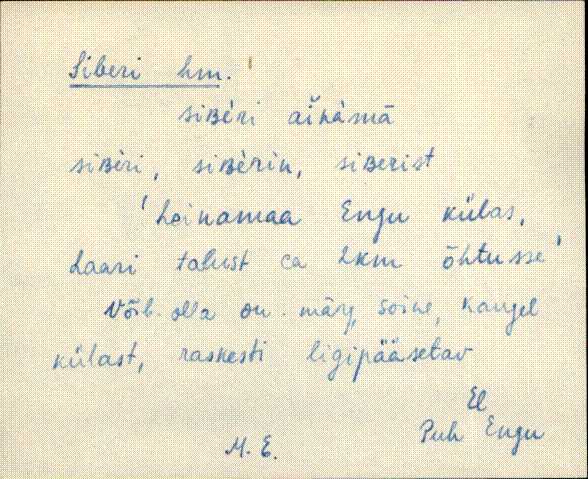 Siberi hm.
siʙèri aĭnàmā
siʙèri, siʙèrin, siʙerist
'heinamaa Engu külas,
Laari talust ca 2km õhtusse'
Võib olla on märg, soine, kaugel
külast, raskesti ligipääsetav
El
Puh Engu
M. E.